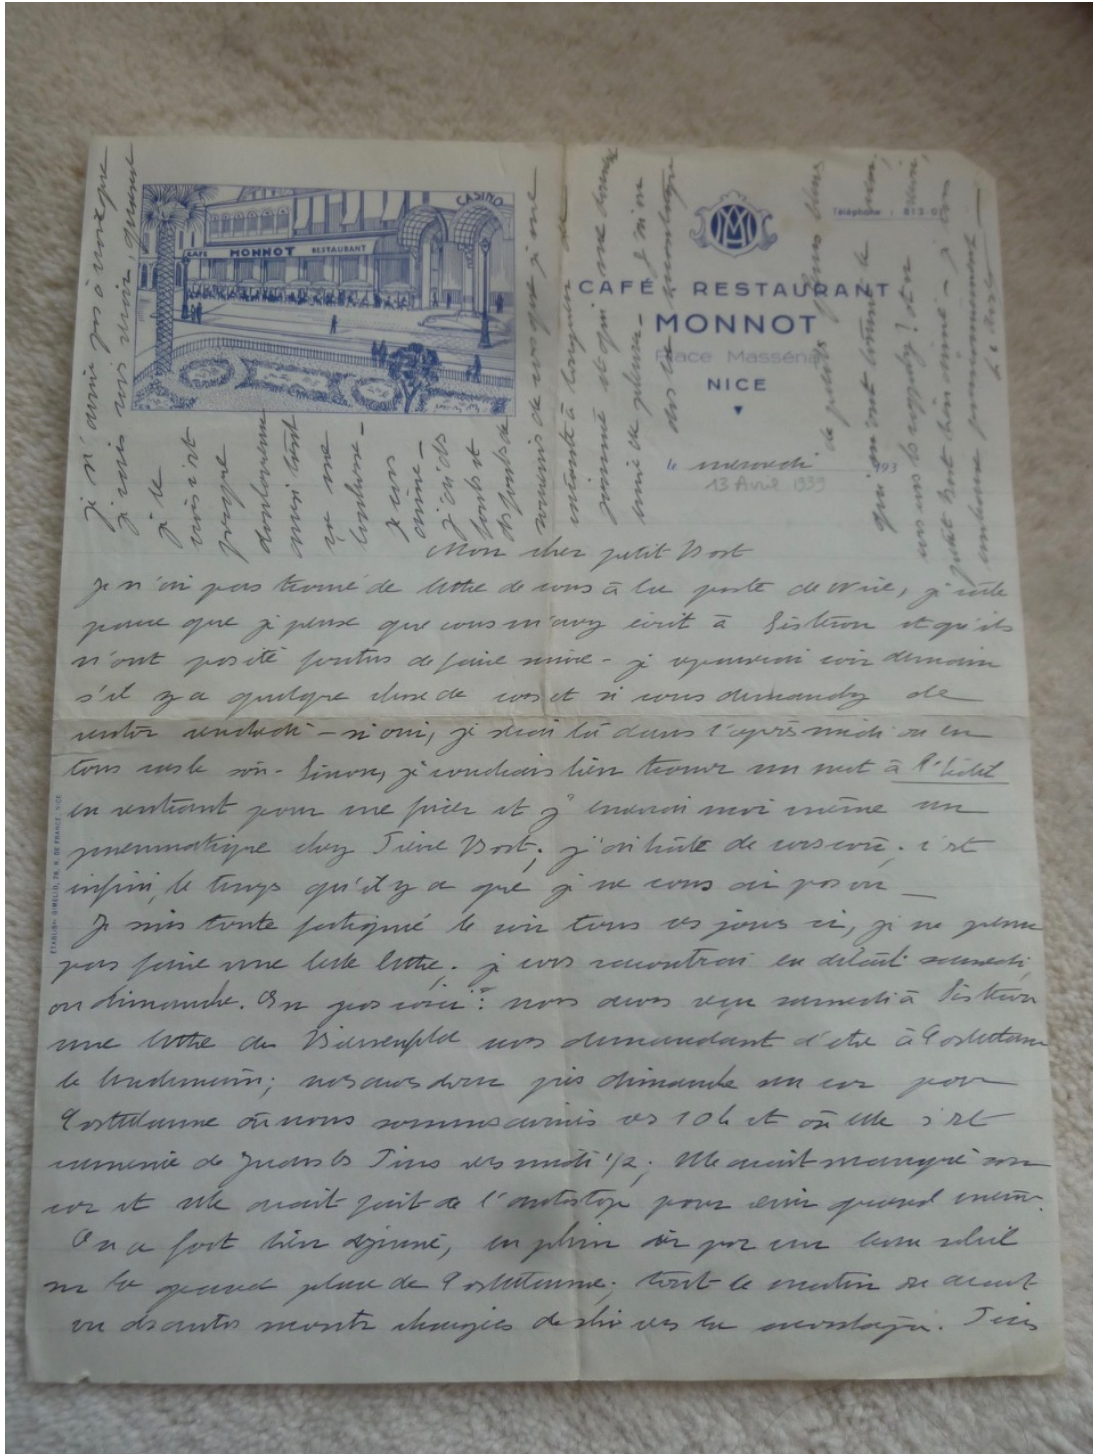 CASINO
CAFÉ MONNOT RESTAURANT
Téléphone : 813-0
CAFÉ RESTAURANT
MONNOT
Place Masséna
NICE
le mercredi 193
13 Avril 1939
Mon cher petit Bost
Je n'ai pas trouvé de lettre de vous à la poste de Nice, je
parce que je pense que vous m'avez écrit à Sisteron et qu'ils
n'ont pas été foutus de faire suivre - je voir demain
s'il y a quelque chose de vous et si vous demandez de
rentrer vendredi - si oui, je serai là dans l'après midi ou en
tous cas le soir - Sinon, je voudrais bien trouver un mot à l'hôtel
en rentrant pour me fixer et j'enverrai moi même un
pneumatique chez Pierre Bost; j'ai hâte de vous voir. c'est
infini, le temps qu'il y a que je ne vous ai pas vu —
Je suis toute fatiguée le soir tous ces jours ci, je ne peux
pas faire une belle lettre. je vous raconterai en détail samedi
ou dimanche. En gros voici : nous avons reçu samedi à Sisteron
une lettre de Bienenfeld nous demandant d'être à Castellane
le lendemain; nous avons donc pris dimanche un car pour
Castellane où nous sommes arrivés vers 10h et où elle s'est
amenée de Juan les Pins vers midi ½; elle avait manqué son
car et elle avait fait de l'autostop pour venir quand même.
On a fort bien déjeuné, en plein air par un beau soleil
sur la grand place de Castellane; tout le matin on avait
vu des autos monter chargées de skis vers la montagne. Puis
je n'arrive pas à croire que
je vais vous revoir, quand
je le
vois c'est
presque
douloureux
aussi tant
ça me
bouleverse -
Je vous
aime -
j'ai des
fonds et
des fonds de
souvenirs de vous que je me
raconte à longueur de
journée et qui me donnent
envie de pleurer -
ÉTABLISᵗˢ GIMELLO, 28, R. DE FRANCE - NICE